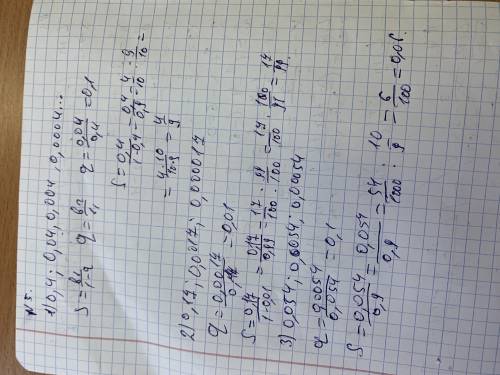 №5.
1) 0,4; 0,04; 0,004; 0,0004...
S = b₁/1-q   q = b₂/b₁   q = 0,04/0,4 = 0,1
S = 0,4/1-0,1 = 0,4/0,9 = 4/10 : 9/10 =
= 4·10/10·9 = 4/9
2) 0,17; 0,0017; 0,000017
q = 0,0017/0,17 = 0,01
S = 0,17/1-0,01 = 0,17/0,99 = 17/100 : 99/100 = 17/100 · 100/99 = 17/99
3) 0,054; 0,0054; 0,00054
q = 0,0054/0,054 = 0,1
S = 0,054/0,9 = 0,054/0,9 = 54/1000 · 10/9 = 6/100 = 0,06.